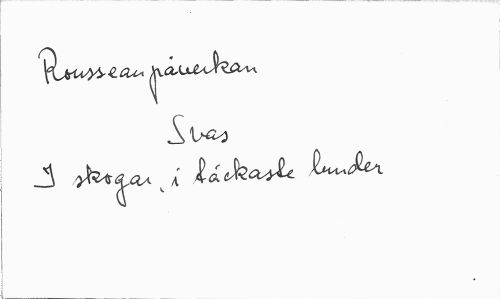 Rousseaupåverkan
Svas
I skogar, i täckaste lunder